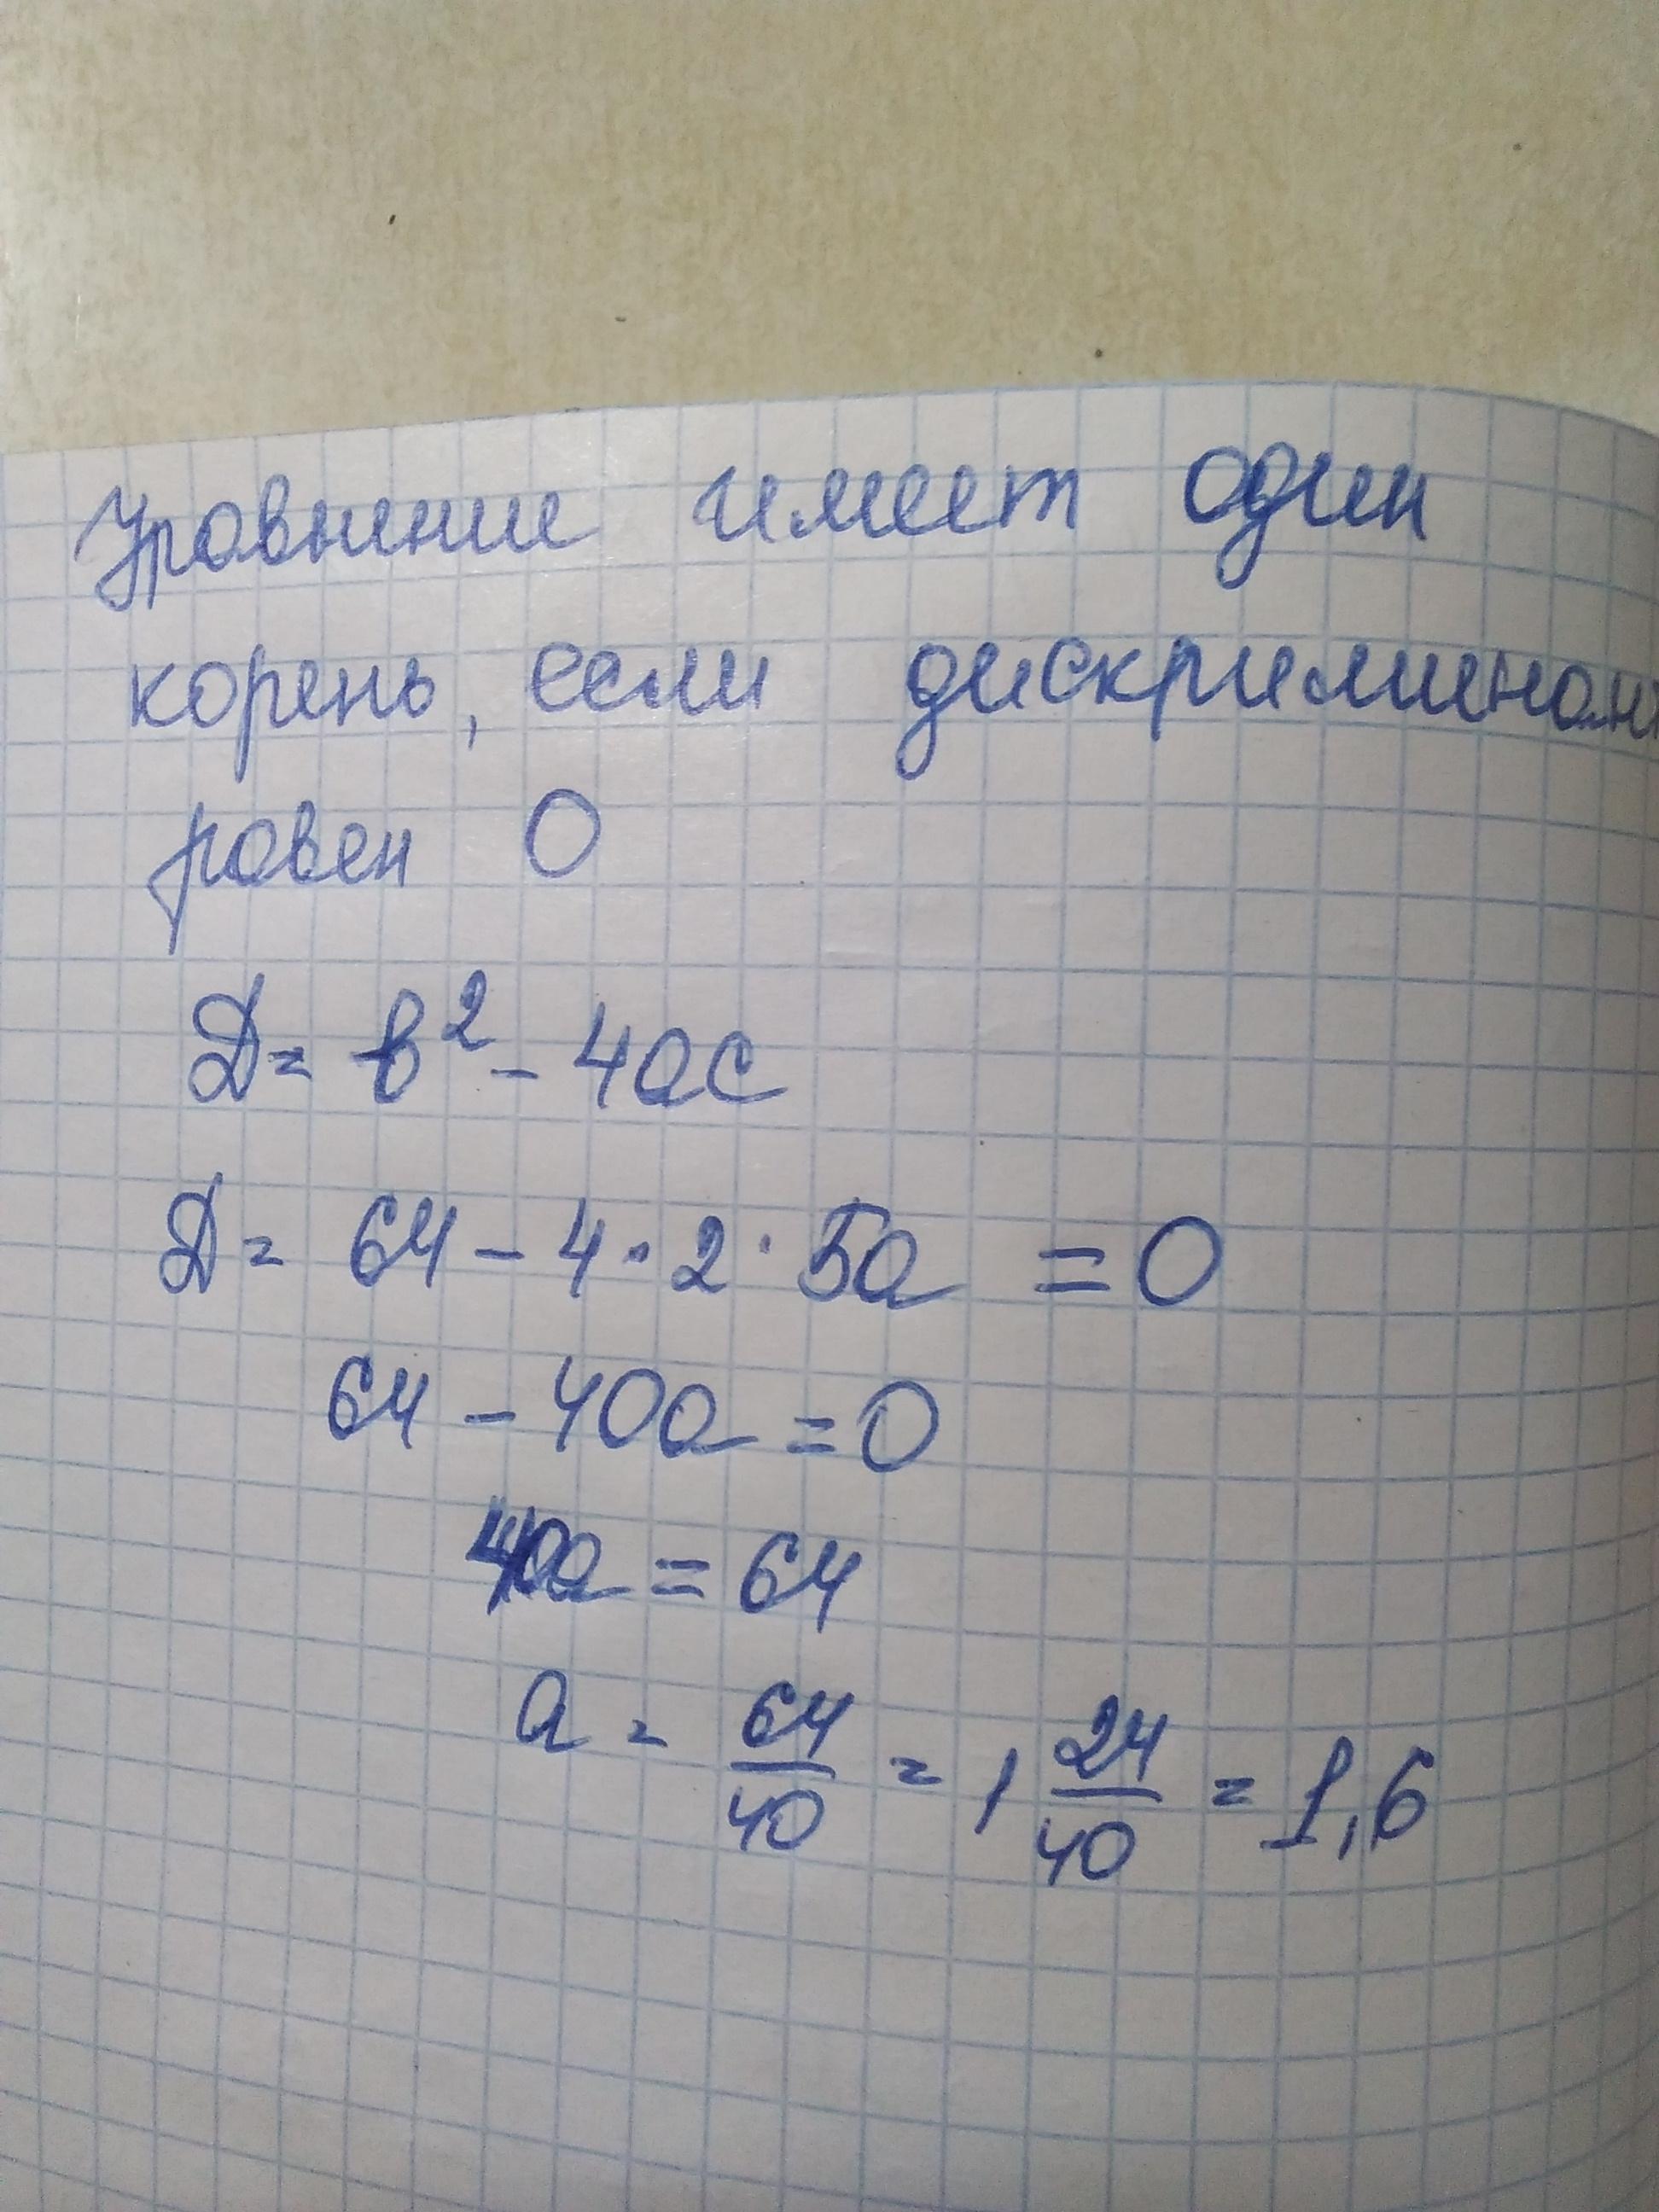 Уравнение имеет один
корень, если дискриминант
равен 0
D = b² - 4ac
D = 64 - 4 · 2 · 5a = 0
64 - 40a = 0
40a = 64
a = 64/40 = 1 24/40 = 1,6